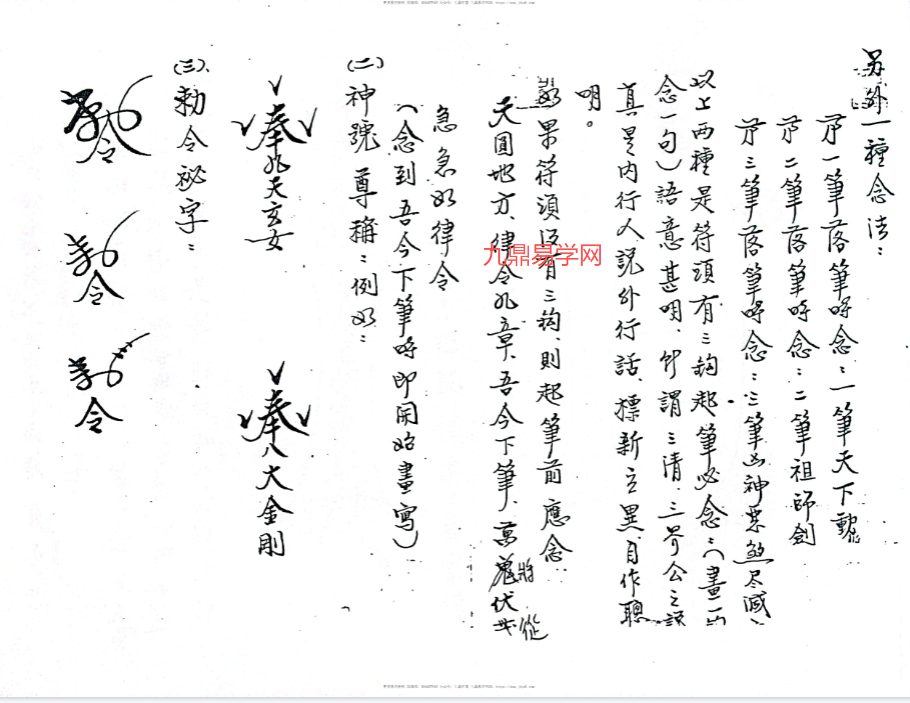 另外一種念法：
苐一筆落筆時念：一筆天下動
苐二筆落筆時念：二筆祖師劍
苐三筆落筆時念：三筆凶神惡煞尽滅
以上両種是符頭有三鈎起筆必念：（畫一鈎
念一句）語意甚明，所謂三清、三界公之説
真是内行人説外行話，標新立異、自作聰
明。
如果符頭没有三鈎，則起筆前應念
天圓地方、律令九章、吾今下筆、萬鬼伏
將 從
急急如律令
（念到吾今下筆時即開始畫寫）
（二）神號尊稱：例如：
奉九天玄女
奉八大金剛
（三）、勅令祕字：
令
令
令
九鼎易学网